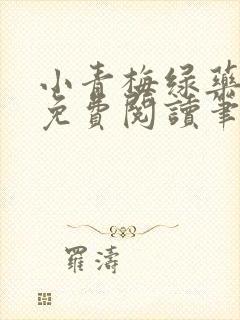 小青梅绿药
免費閱讀筆
羅濤